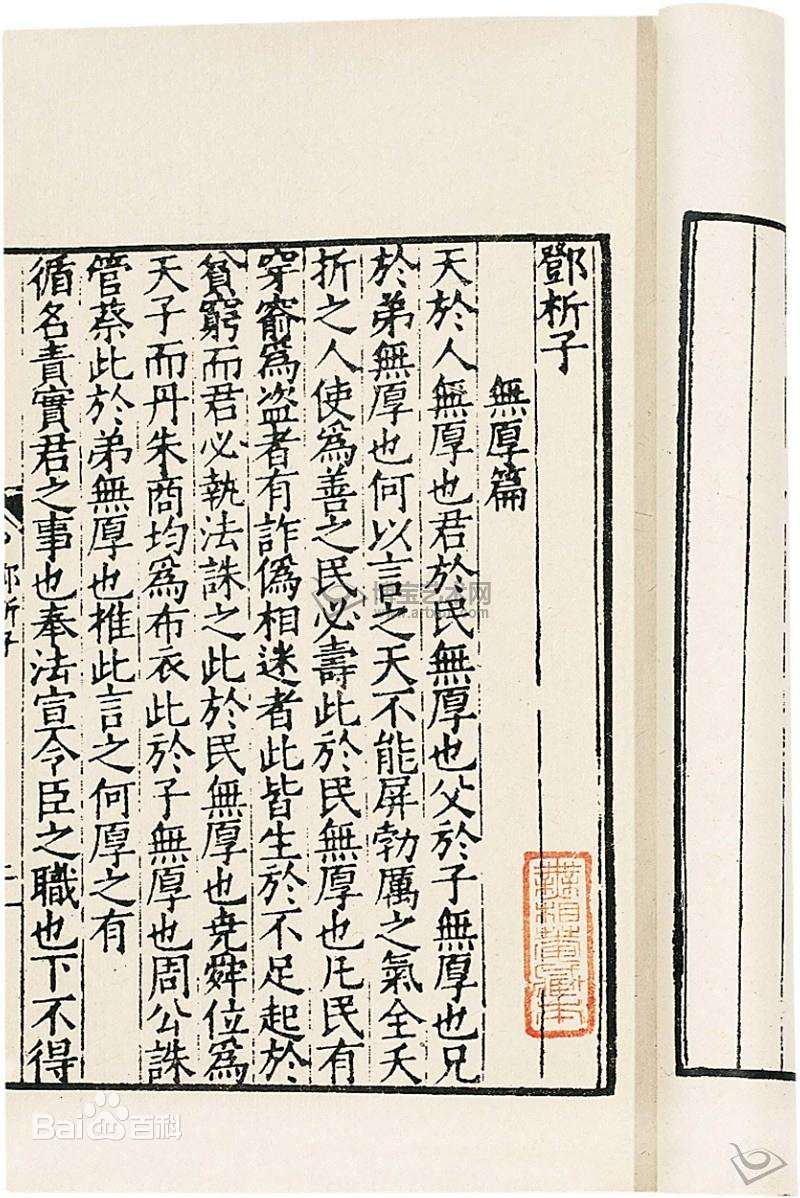 鄧析子
無厚篇
天於人無厚也君於民無厚也父於子無厚也兄
於弟無厚也何以言之天不能屏勃厲之氣全夭
折之人使爲善之民必壽此於民無厚也凡民有
穿窬爲盗者有詐僞相迷者此皆生於不足起於
貧窮而君必執法誅之此於民無厚也堯舜位爲
天子而丹朱商均爲布衣此於子無厚也周公誅
管蔡此於弟無厚也推此言之何厚之有
循名責實君之事也奉法宣令臣之職也下不得
鄧析子
一
博宝艺术网
Bai百科